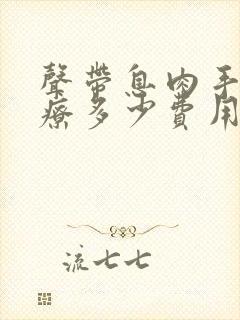 聲帶息肉手
療多少費用
流七七